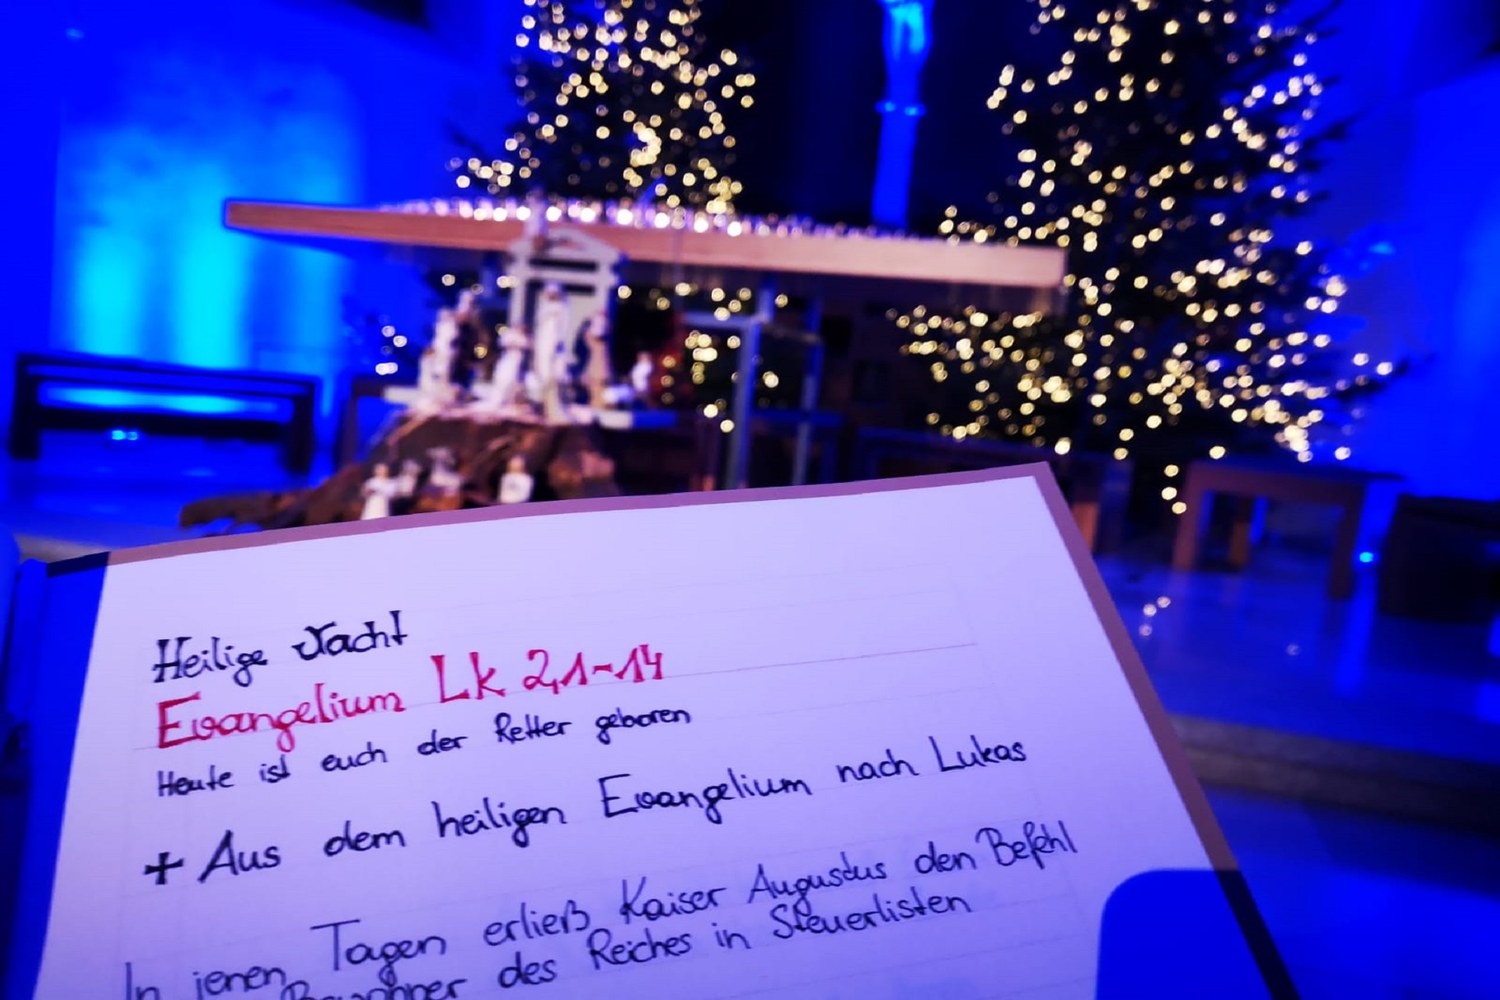 Heilige Nacht
Evangelium Lk 2,1-14
Heute ist euch der Retter geboren
+ Aus dem heiligen Evangelium nach Lukas
In jenen Tagen erließ Kaiser Augustus den Befehl
Bewohner des Reiches in Steuerlisten